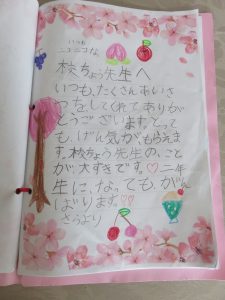 いつも
ニコニコな
校ちょう先生へ
いつも、たくさんあいさ
つをしてくれてありが
とうございます。とって
も、げん気が、もらえま
す。校ちょう先生の、こと
が、大すきです。♡二年
生に、な。ても、がん
ばります。♡♡
さらより